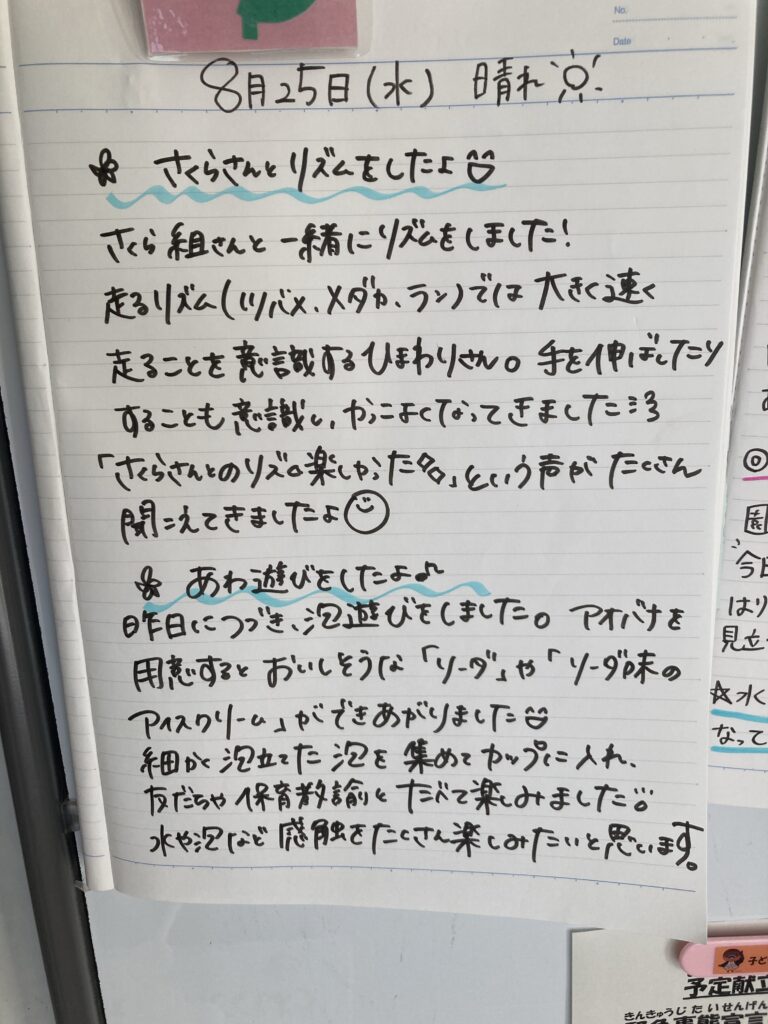 No.
Date
8月25日(水) 晴れ
さくらさんとリズムをしたよ
さくら組さんと一緒にリズムをしました!
走るリズム(ツバメ、メダカ、ラン)では大きく速く
走ることを意識するひまわりさん。手を伸ばしたり
することも意識し、かっこよくなってきました
「さくらさんとのリズム楽しかった」という声がたくさん
聞こえてきましたよ
あわ遊びをしたよ♪
昨日につづき、泡遊びをしました。アオバナを
用意するとおいしそうな「ソーダ」や「ソーダ味の
アイスクリーム」ができあがりました
細かく泡立てた泡を集めてカップに入れ、
友だちや保育教諭とたべて楽しみました
水や泡など感触をたくさん楽しみたいと思います。
◎
園
今日
はり
見立
☆水く
なって
子ど
予定献立
きんきゅうじたいせんげん
緊急事態宣言